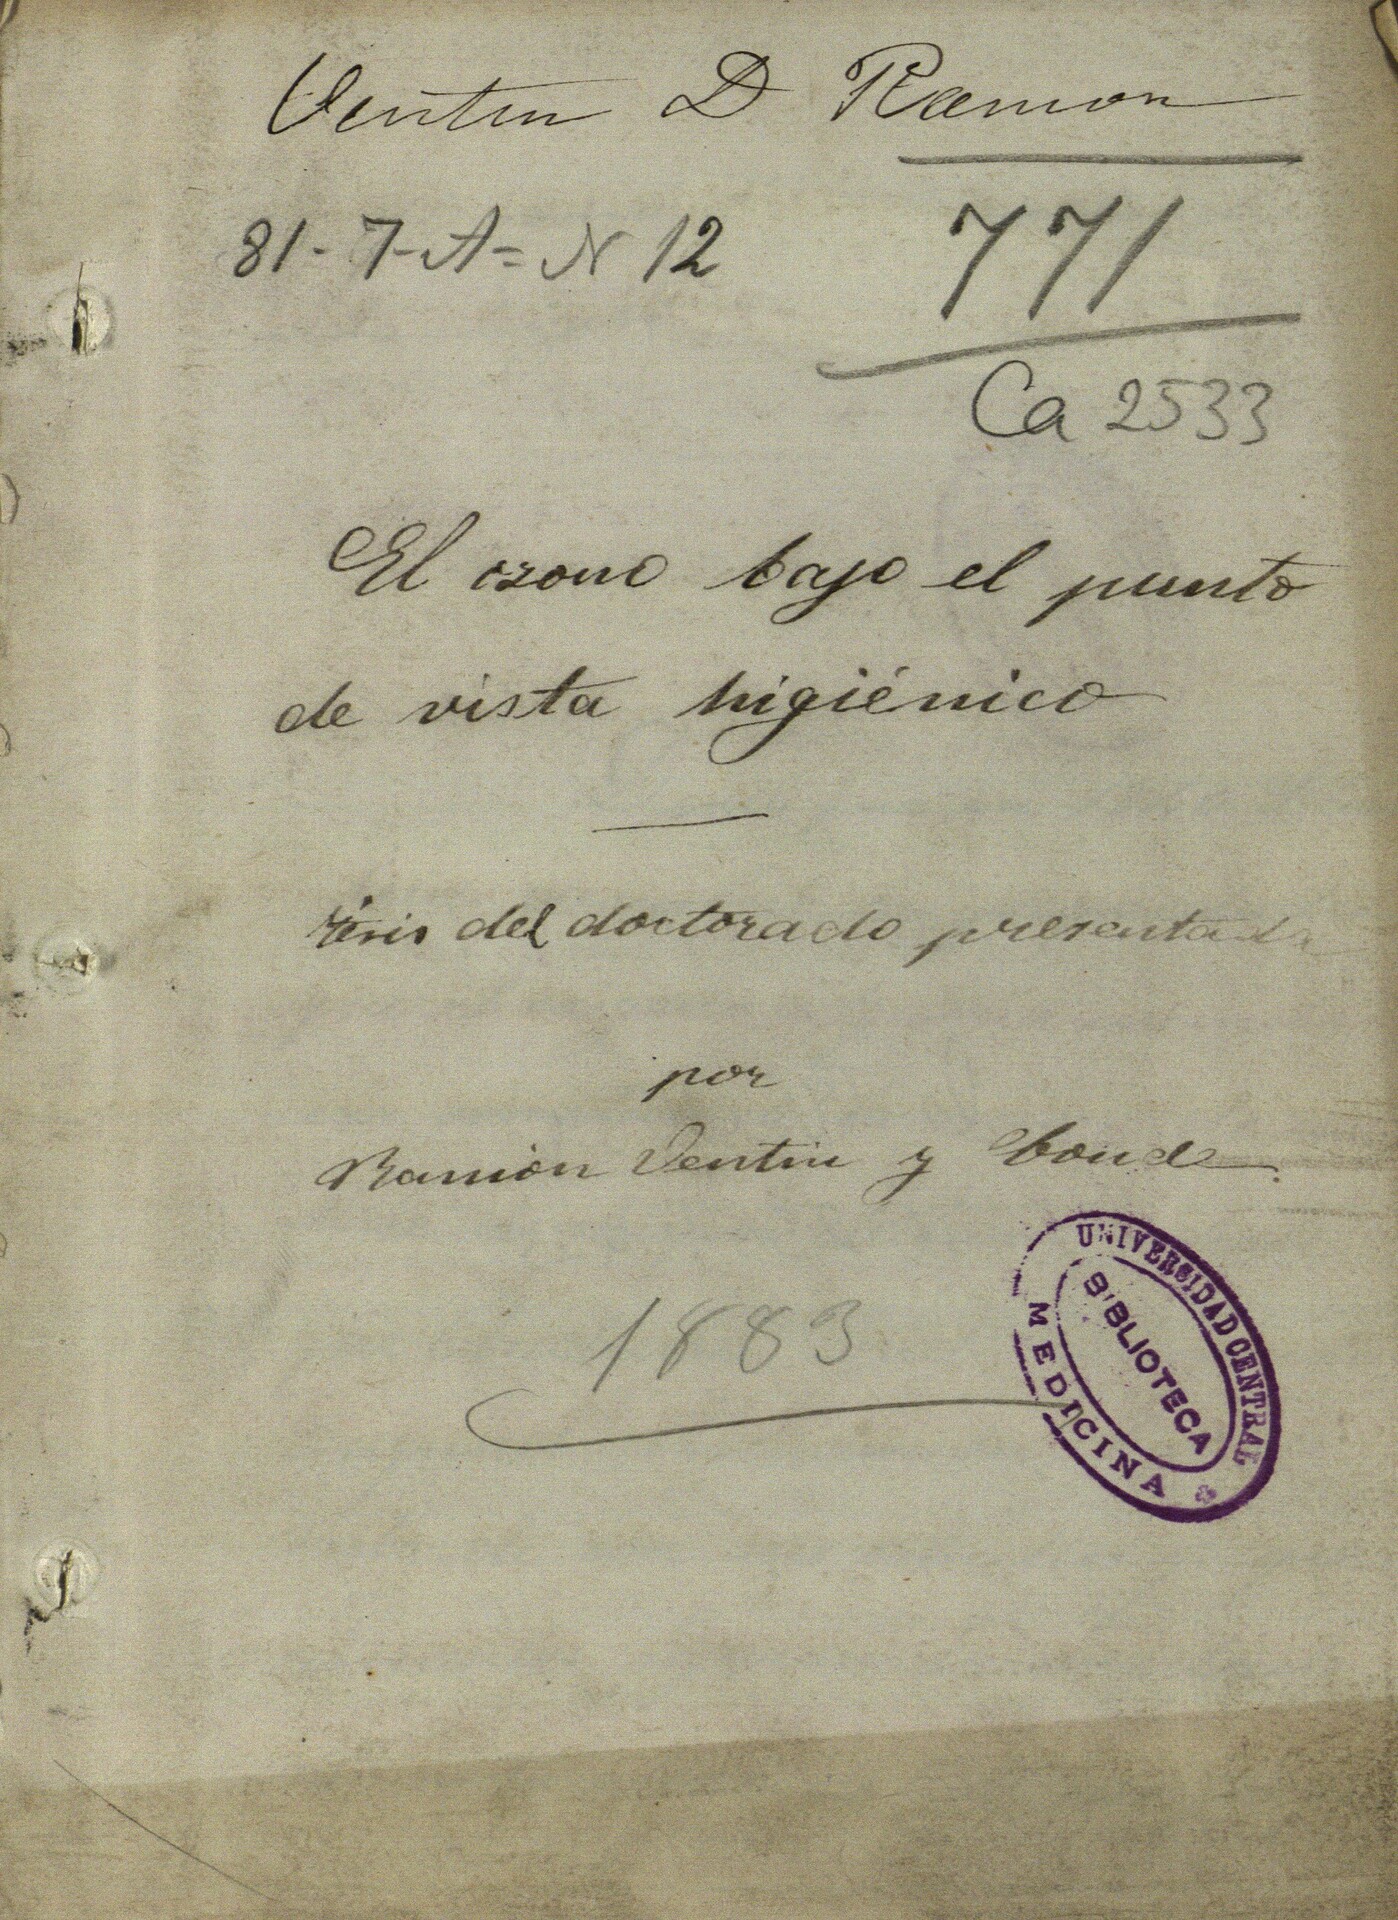 Ventin D Ramon
81-7-A=N 12
771
Ca 2533
El ozono bajo el punto
de vista higiénico
tésis del doctorado presentada
por
Ramón Ventin y Conde.
1883
UNIVERSIDAD CENTRAL
BIBLIOTECA
MEDICINA